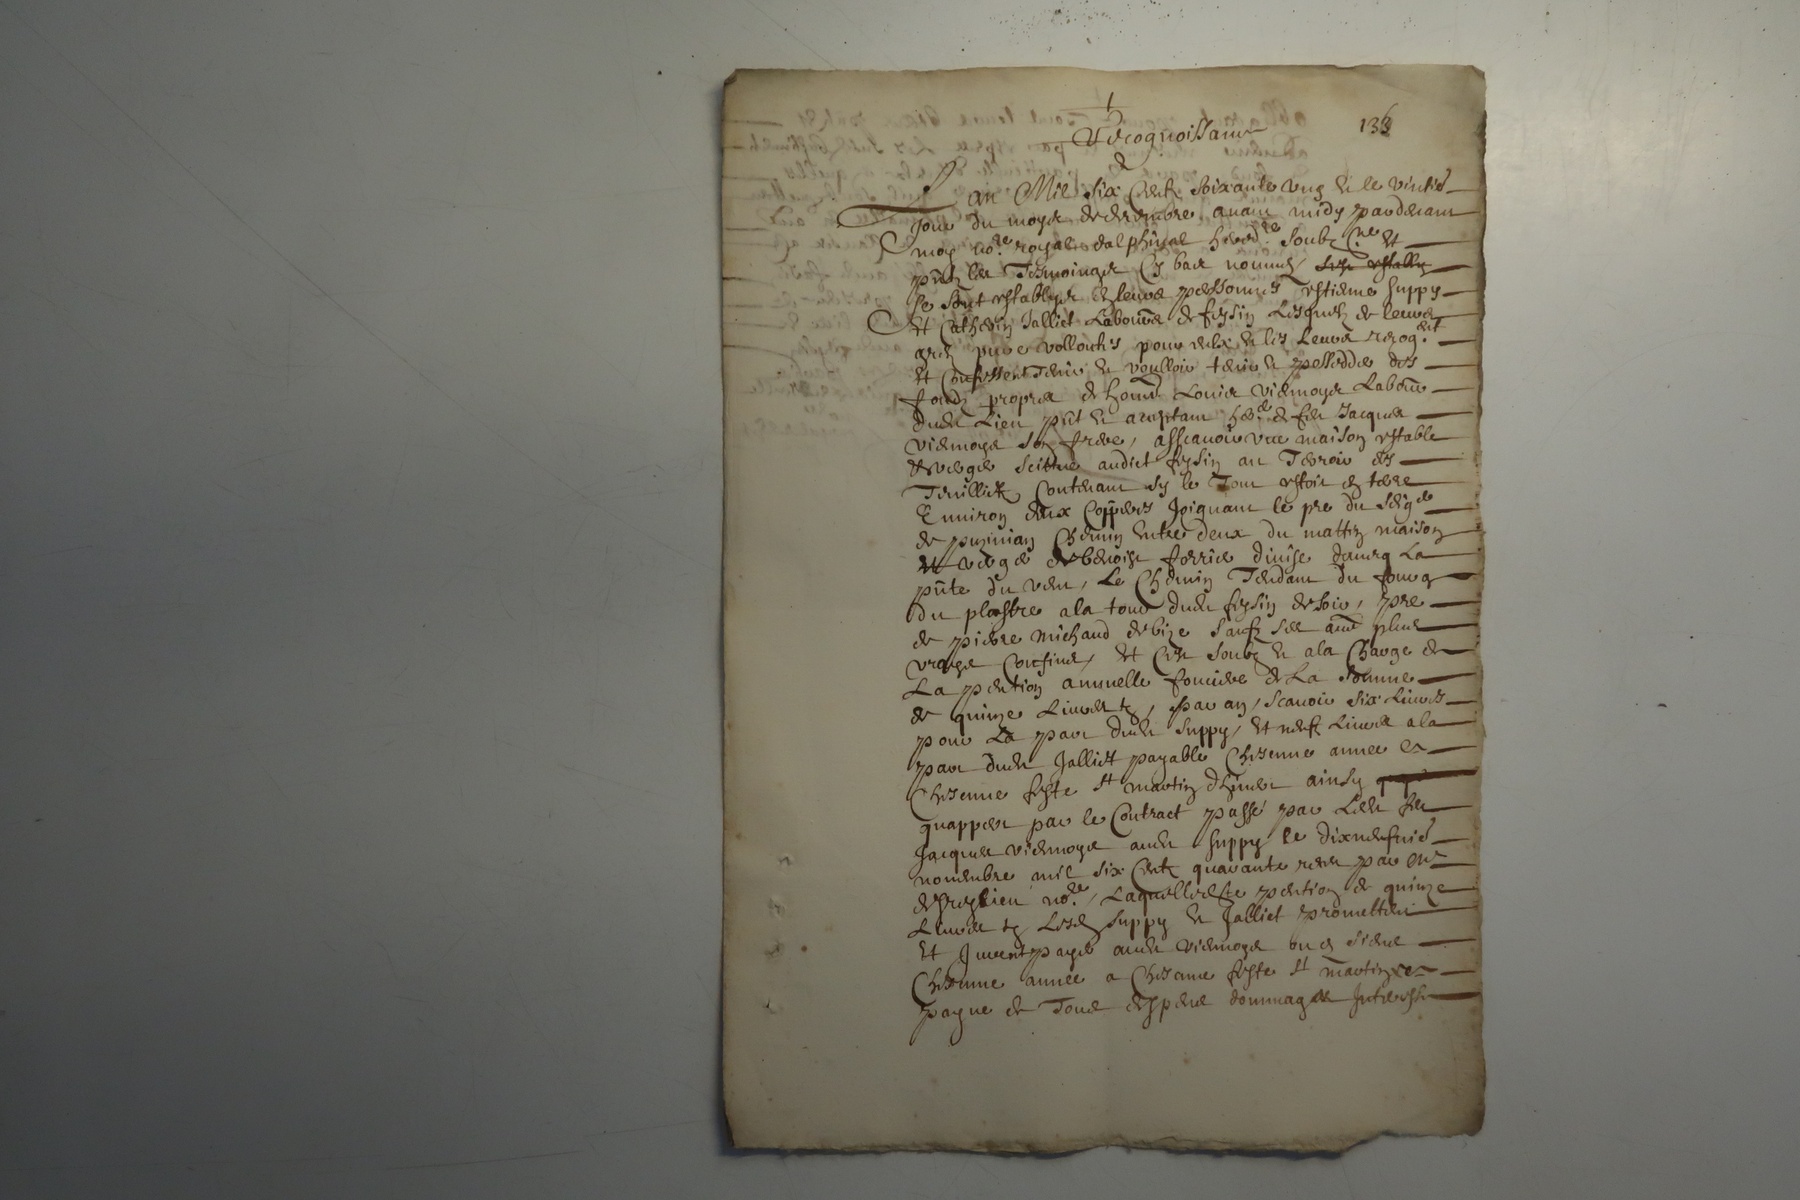 138
Recognoissance
Lan Mil six Centz soixante ung & le vintie
Jour du moys de decembre avant midy pardevant
moy no.re royal dalphinal hered.re soubz.ne et
pntz les Tesmoingz Cy bas nommes
se sont establys en leurs personnes estienne suppy
et Catherin Jalliet Labours de feysin Lesquelz de leurs
grez pure vollontes pour eulx & les Leurs recog.
et Confessent Tenir & voulloir tenir & posseder des
fondz propres de honn Louis viemoye Labour
dudit Lieu pnt & aceptant her.e de feu Jacques
viemoye son frere, asscavoir une maison estable
& verger scittue audict feysin au Terroir des
Contenant sy le Tout estoit en terre
Environ deux Coppees Joignant le pre du seig.r
de puninian Chemin entre deux du mattin maison
et verger de benoist ferrier divise parmy La
pnte du vent, Le Chemin Tendant du fourg
du plastre a la tour dudit feysin de soir, pre
de pierre michaud de bize saufz ses aues plus
vrays Confins, et Ce soubz & a la Charge de
La pention annuelle fonciere de La somme
de quinze Livres tz, par an, scavoir six Livres
pour La part dudit suppy, et neufz Livres a la
part dudit Jalliet payable Chescune annee &
Chescune feste st martin dhiver ainsy
quappert par le Contract passe par Ledit feu
Jacques viemoye audit suppy le dixneufvie
novembre mil six Centz quarante par me
no.re, Laquelle pention de quinze
Livres tz Lesd suppy & Jalliet promettent
et Jurent payer audit viemoye ou es siens
Chescune annee a Chescune feste st martin
payne de Tous despens dommages Interestz